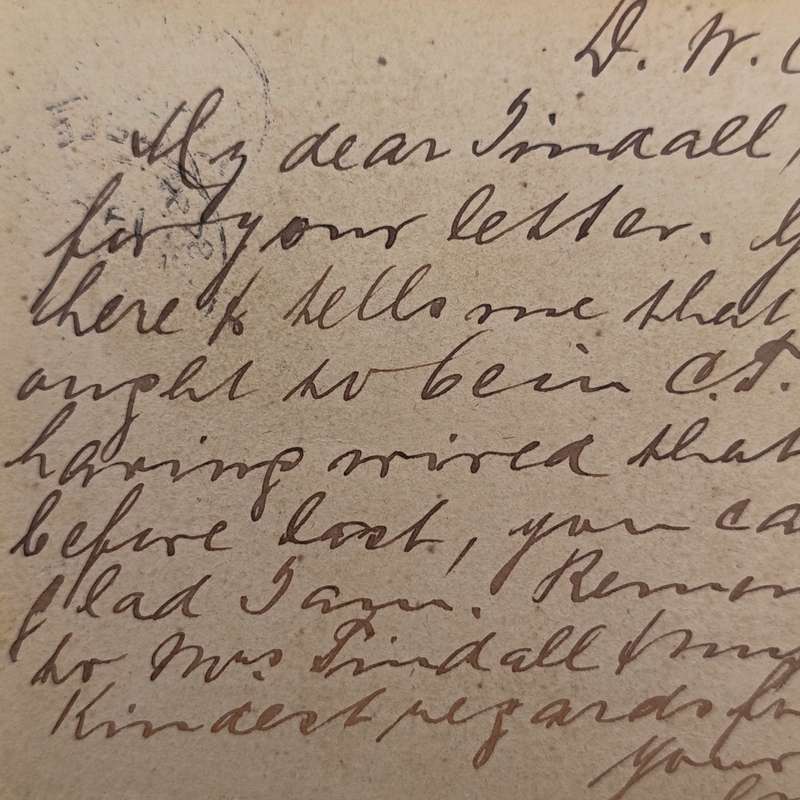 D. W.
My dear Tindall,
for your letter.
here & tells me that
ought to be in C.T.
having wired that
before last, you ca
glad I am. Remem
to Mrs Tindall & my
Kindest regards
your